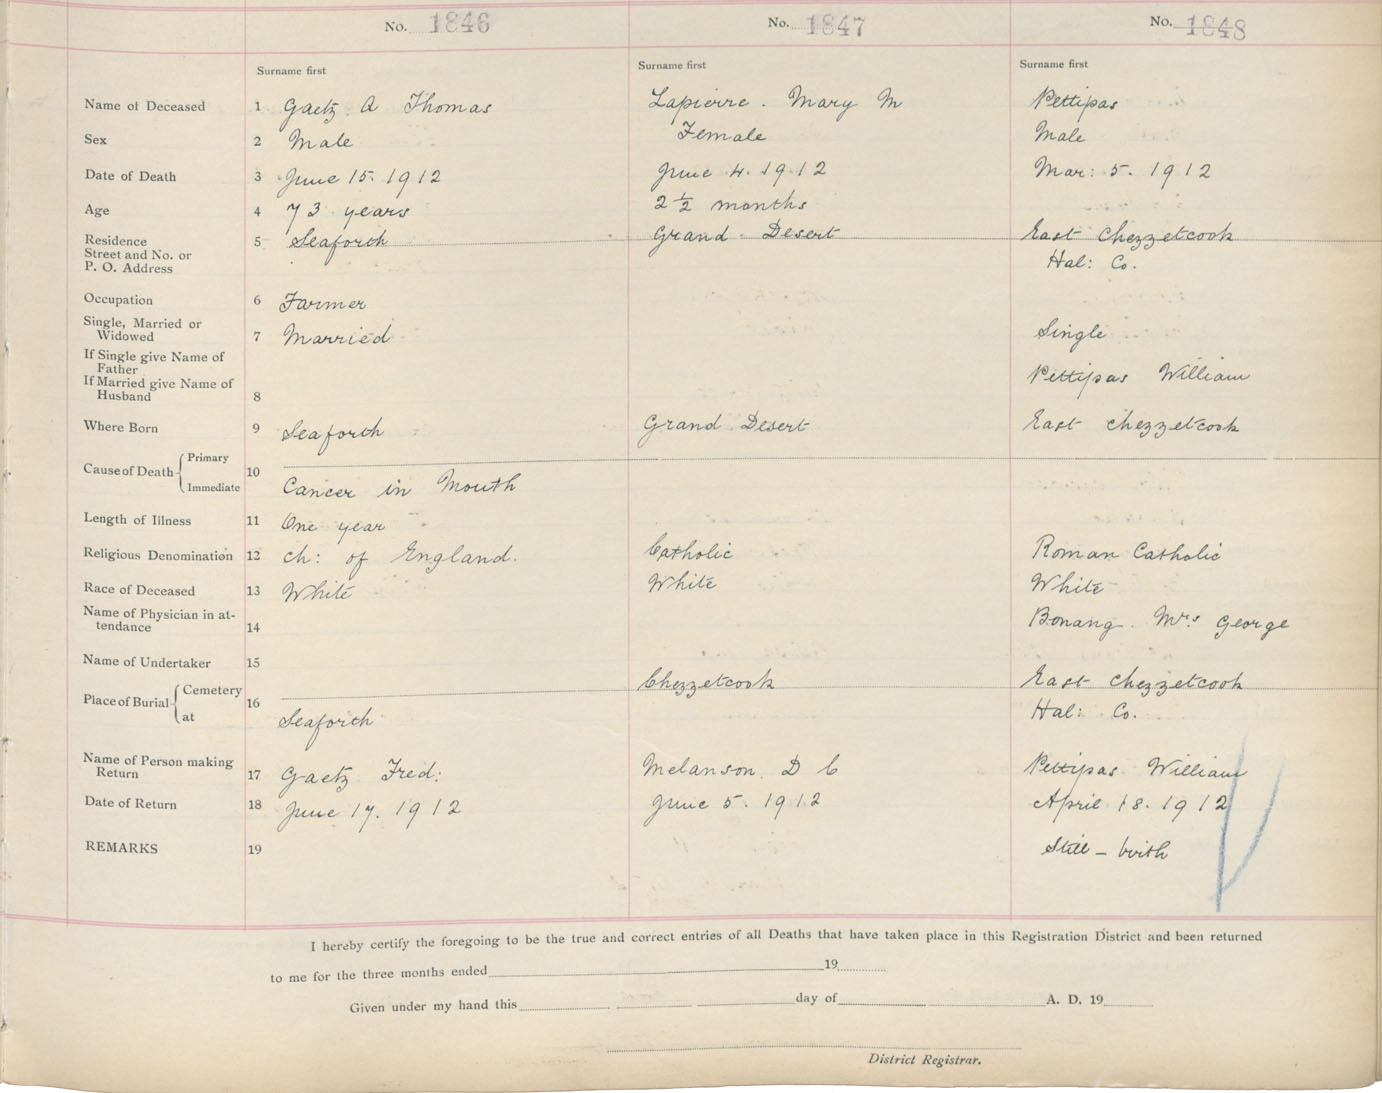 No. 1846 No. 1847 No. 1848
Surname first Surname first Surname first
Name of Deceased 1 Gaetz A Thomas Lapierre. Mary M Pettipas
Sex 2 Male Female Male
Date of Death 3 June 15. 1912 June 4. 1912 Mar: 5. 1912
Age 4 73 years 2 1/2 months
Residence 5 Seaforth Grand Desert East Chezzetcook
Street and No. or
P. O. Address Hal: Co.
Occupation 6 Farmer
Single, Married or
Widowed 7 Married Single
If Single give Name of
Father Pettipas William
If Married give Name of
Husband 8
Where Born 9 Seaforth Grand Desert East Chezzetcook
Cause of Death Primary 10
Immediate Cancer in Mouth
Length of Illness 11 One year
Religious Denomination 12 ch: of England. Catholic Roman Catholic
Race of Deceased 13 White White White
Name of Physician in at-
tendance 14 Bonang. Mrs George
Name of Undertaker 15
Place of Burial Cemetery 16 Chezzetcook East Chezzetcook
at Seaforth Hal: Co.
Name of Person making
Return 17 Gaetz Fred: Melanson D C Pettipas William
Date of Return 18 June 17. 1912 June 5. 1912 April 18. 1912
REMARKS 19 Still - birth
I hereby certify the foregoing to be the true and correct entries of all Deaths that have taken place in this Registration District and been returned
to me for the three months ended 19
Given under my hand this day of A. D. 19
District Registrar.